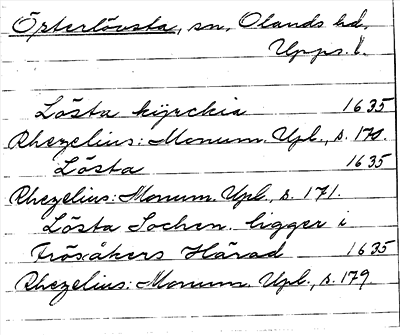 Österlövsta, sn, Olands hd,
Upps. l.
Lösta kÿrckia 1635
Rhezelius: Monum. Upl., s. 170.
Lösta 1635
Rhezelius: Monum. Upl., s. 171.
Lösta Sochen ligger i
Frösåkers Härad 1635
Rhezelius: Monum. Upl., s. 179.